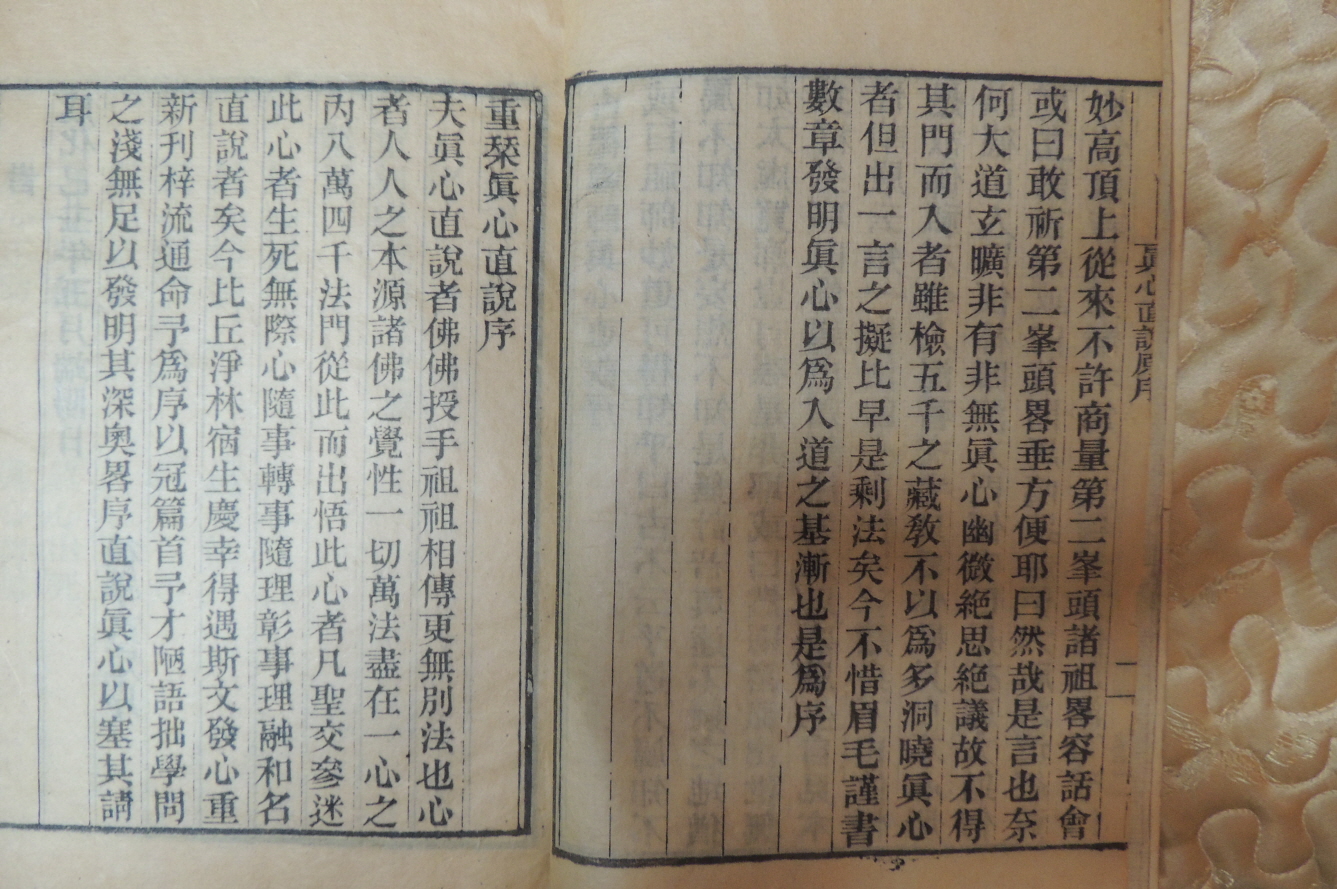 眞心直說原序
二
妙高頂上從來不許商量第二峯頭諸祖畧容話會
或曰敢祈第二峯頭畧垂方便耶曰然哉是言也奈
何大道玄曠非有非無眞心幽微絶思絶議故不得
其門而入者雖檢五千之藏教不以爲多洞曉眞心
者但出一言之擬比早是剩法矣今不惜眉毛謹書
數章發明眞心以爲入道之基漸也是爲序
重栞眞心直說序
夫眞心直說者佛佛授手祖祖相傳更無別法也心
者人人之本源諸佛之覺性一切萬法盡在一心之
內八萬四千法門從此而出悟此心者凡聖交參迷
此心者生死無際心隨事轉事隨理彰事理融和名
直說者矣今比丘淨林宿生慶幸得遇斯文發心重
新刊梓流通命予爲序以冠篇首予才陋語拙學問
之淺無足以發明其深奧畧序直說眞心以塞其請
耳